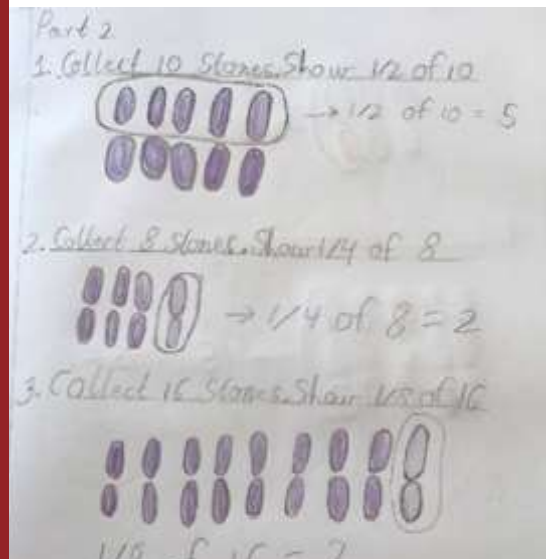 Part 2
1. Collect 10 Stones. Show 1/2 of 10
→ 1/2 of 10 = 5
2. Collect 8 stones. Show 1/4 of 8
→ 1/4 of 8 = 2
3. Collect 16 Stones. Show 1/8 of 16
1/8 of 16 = 2